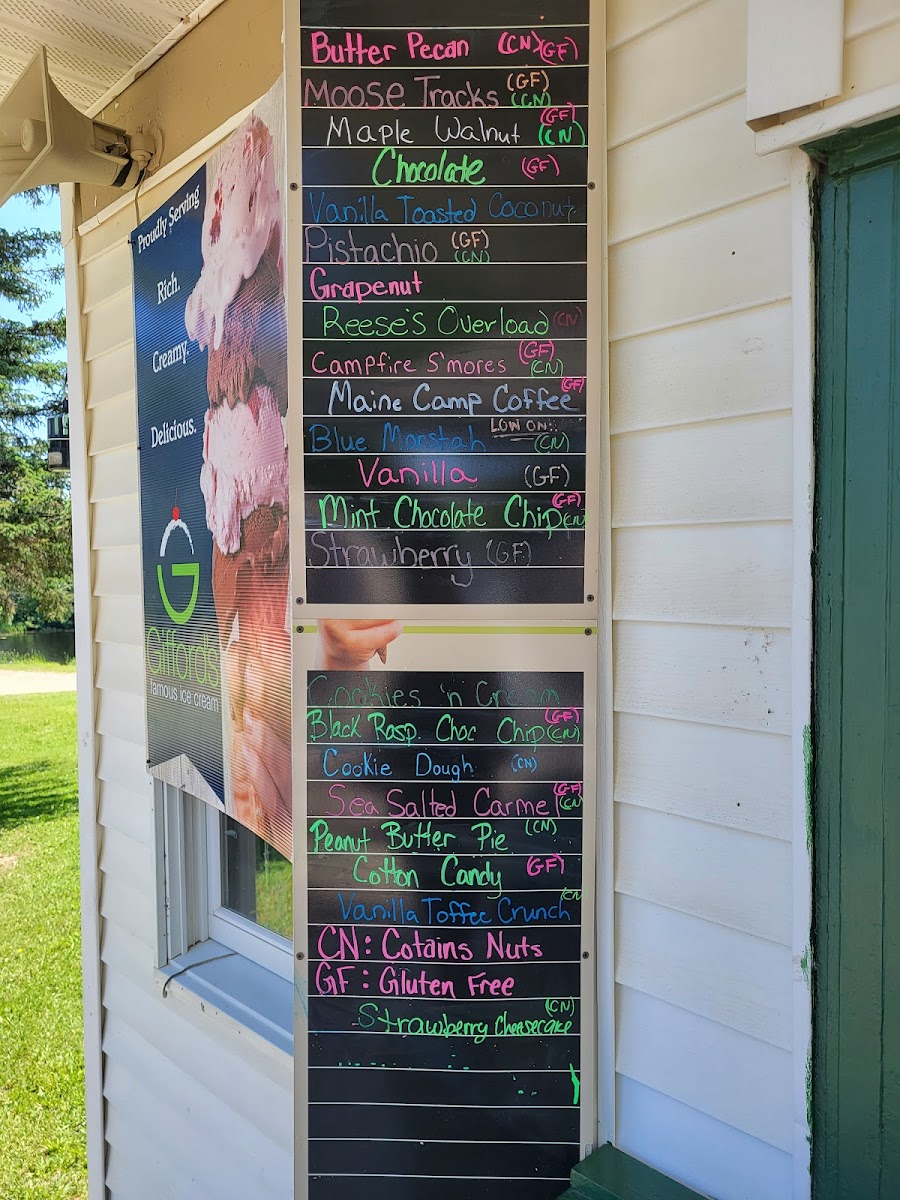 Proudly Serving
Rich.
Creamy.
Delicious.
G
Gifford's
famous ice cream
Butter Pecan (CN)(GF)
Moose Tracks (GF) (CN)
Maple Walnut (GF) (CN)
Chocolate (GF)
Vanilla Toasted Coconut
Pistachio (GF) (CN)
Grapenut
Reese's Overload (CN)
Campfire S'mores (GF) (CN)
Maine Camp Coffee (GF)
Blue Monstah LOW ON: (CN)
Vanilla (GF)
Mint Chocolate Chip (GF) (CN
Strawberry (GF)
Cookies 'n Cream
Black Rasp. Choc Chip (GF) (CN)
Cookie Dough (CN)
Sea Salted Carmel (GF) (CN
Peanut Butter Pie (CN)
Cotton Candy (GF)
Vanilla Toffee Crunch (CN
CN: Cotains Nuts
GF: Gluten Free
Strawberry Cheesecake (CN)